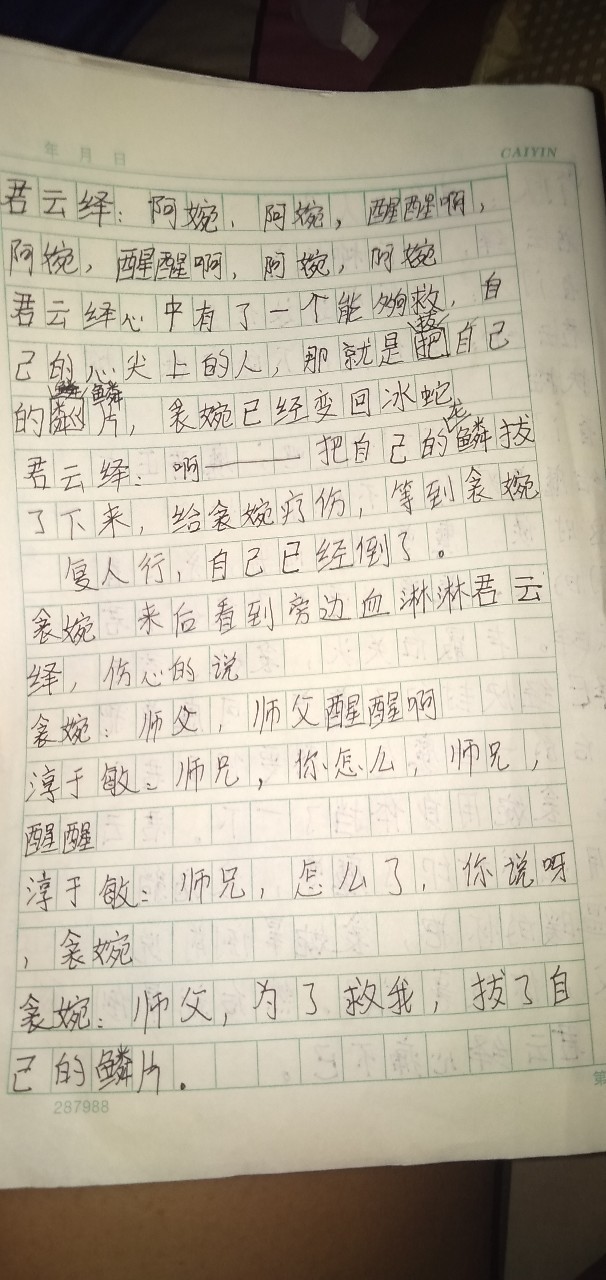 年 月 日
CAIYIN
君云绎：阿婉，阿婉，醒醒啊，
阿婉，醒醒啊，阿婉，阿婉
君云绎心中有了一个能够救，自
己的心尖上的人，那就是拔自己
的鳞片，衾婉已经变回冰蛇
君云绎：啊——— 把自己的龙鳞拔
了下来，给衾婉疗伤，等到衾婉
复人行，自己已经倒了。
衾婉 来后看到旁边血淋淋君云
绎，伤心的说
衾婉：师父，师父醒醒啊
淳于敏：师兄，你怎么，师兄，
醒醒
淳于敏：师兄，怎么了，你说呀
，衾婉
衾婉：师父，为了救我，拔了自
己的鳞片．
287988
第